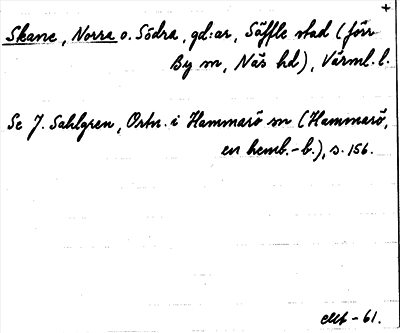 +
Skane, Norra o. Södra, gd:ar, Säffle stad (förr
By sn, Näs hd), Värml. l.
Se J. Sahlgren, Ortn. i Hammarö sn (Hammarö,
en hemb.-b.), s. 156.
-61.